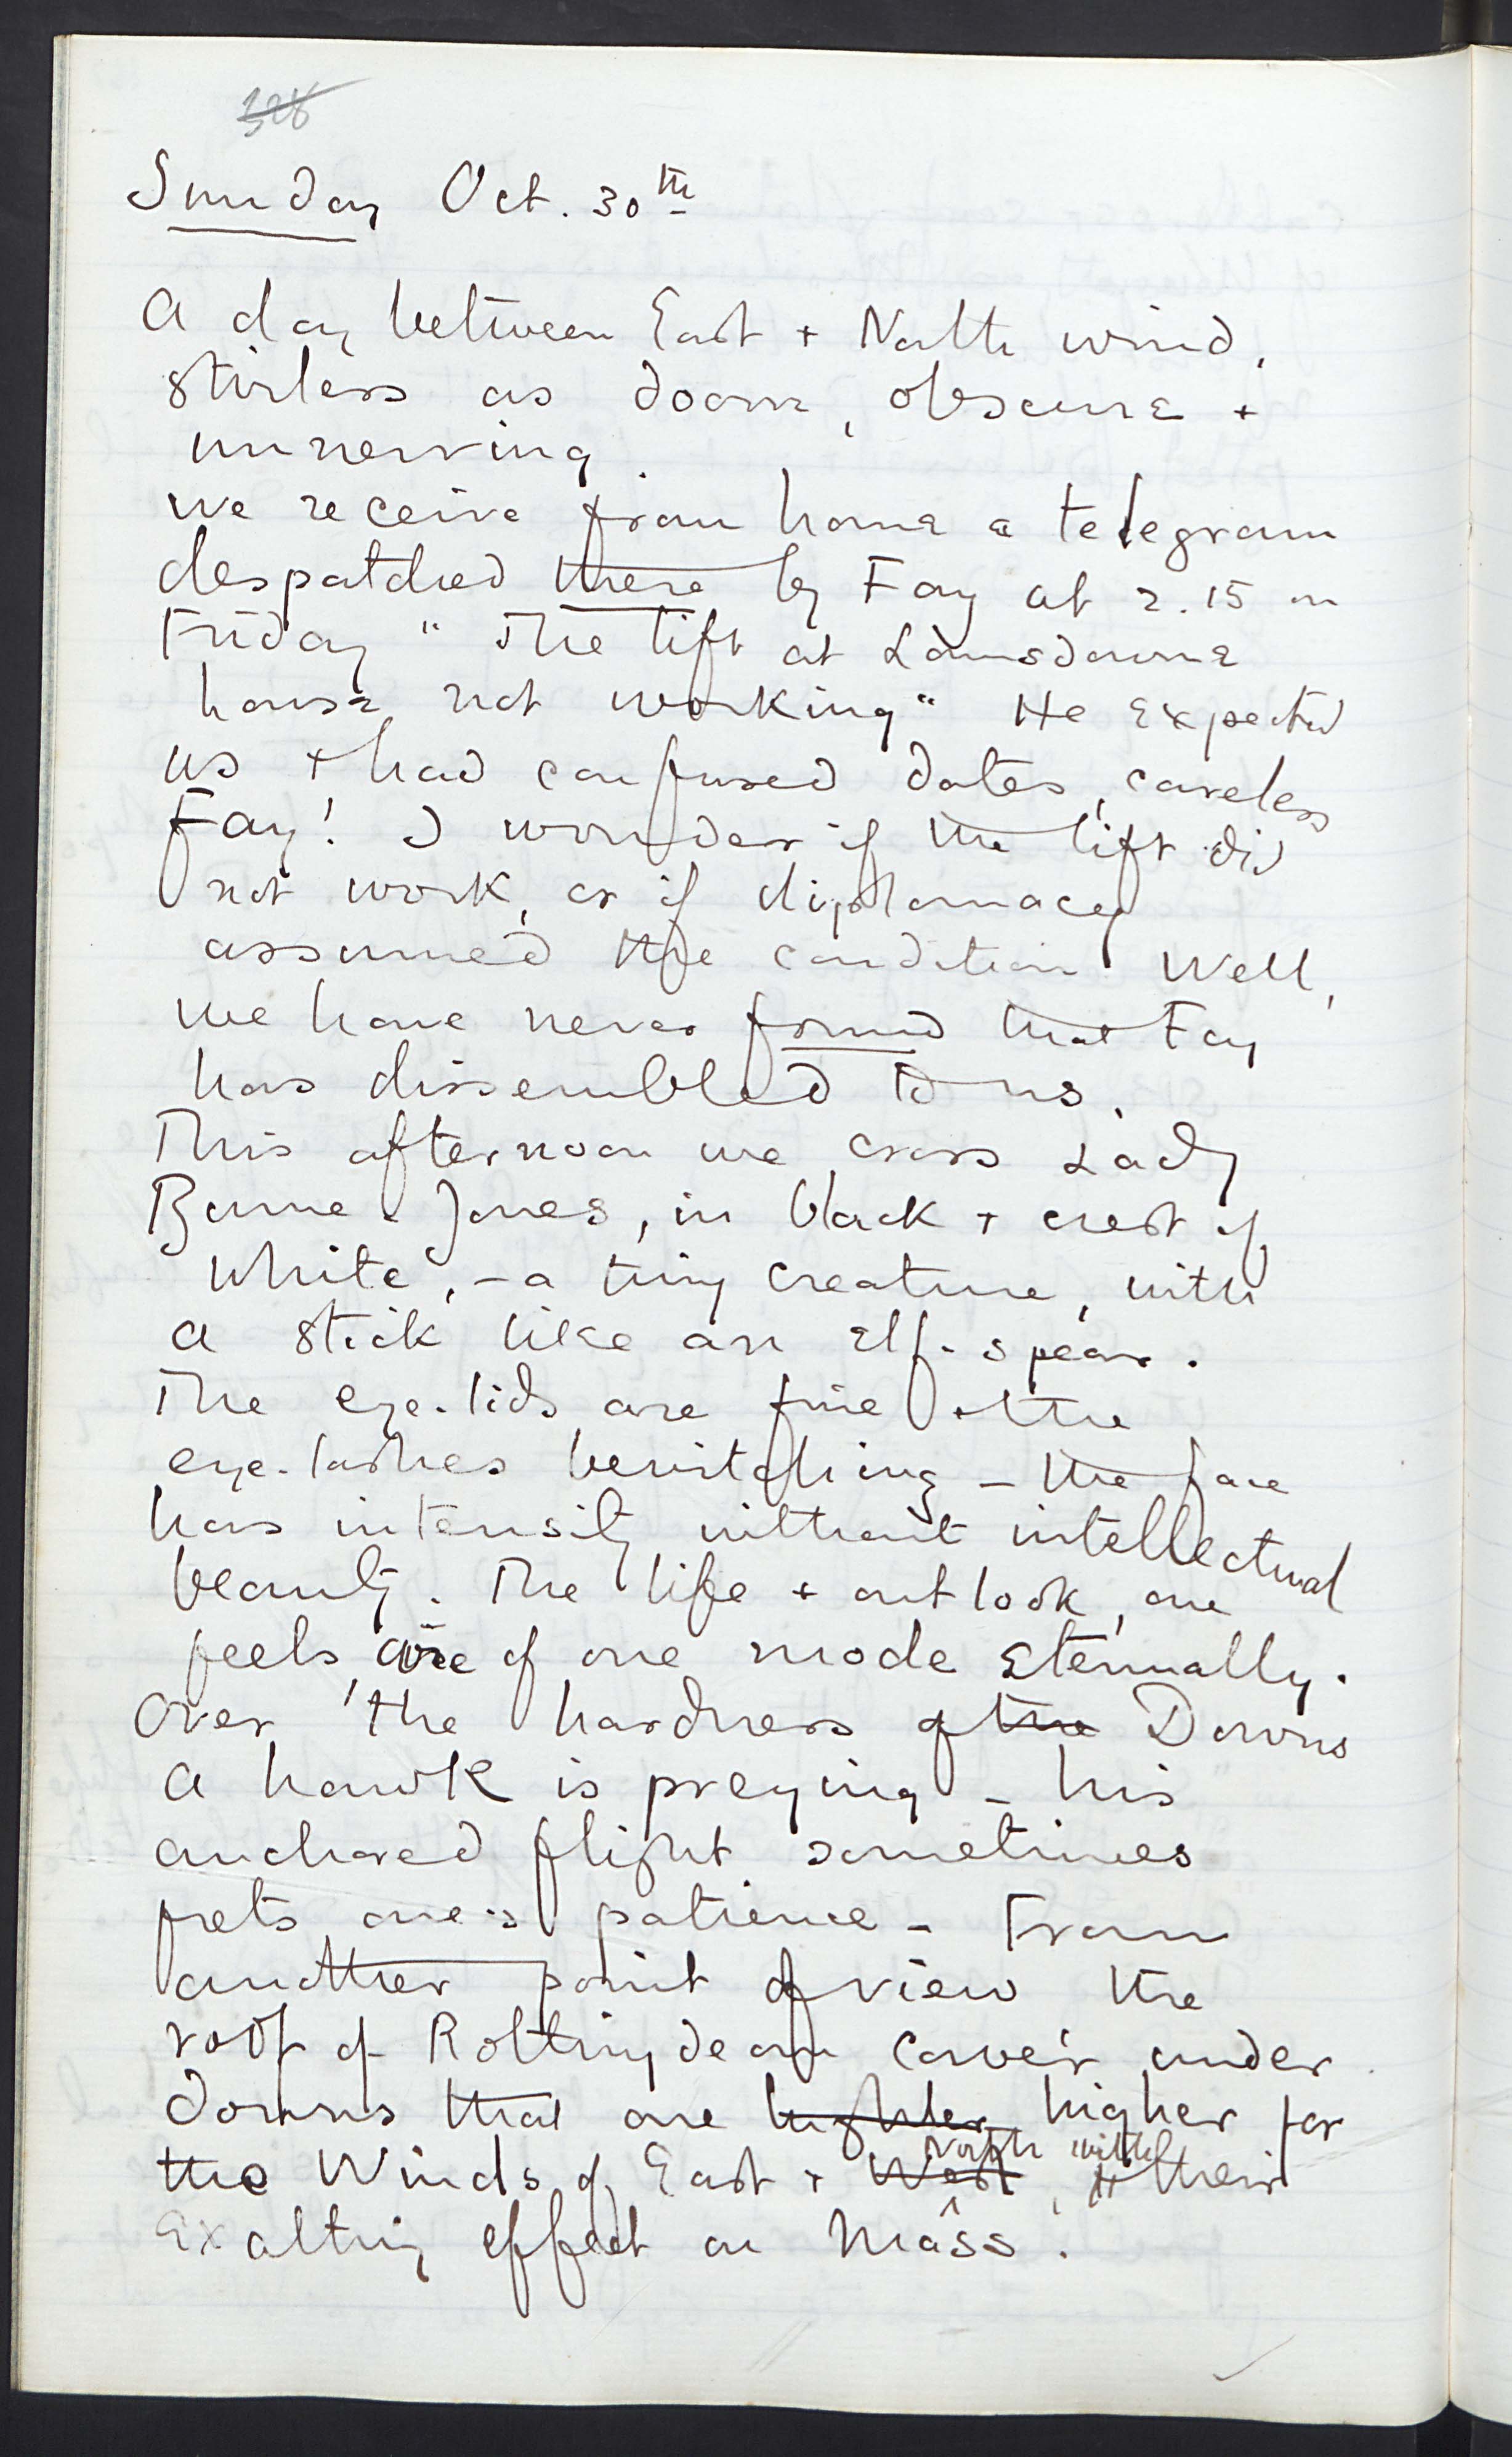 Sunday Oct. 30th
A day between East + North wind,
stirless as doom, obscure +
unnerving.
We receive from home a telegram
despatched there by Fay at 2.15 on
Friday "The lift at Lansdowne
house not working" He expected
us + had confused dates, careless
Fay! I wonder if the lift did
not work, or if diplomacy
assumed the condition! Well,
we have never found that Fay
has dissembled to us.
This afternoon we cross Lady
Burne-Jones, in black + crest of
white, – a tiny creature, with
a stick like an elf-spear.
The eye-lids are fine + the
eye-lashes bewitching – the face
has intensity without intellectual
beauty. The life + outlook, one
feels, are of one mode eternally.
Over the hardness of the Downs
a hawk is preying – his
anchored flight sometimes
frets one's patience – From
another point of view the
roof of Rottingdean cowers under
Downs that are higher higher for
the Winds of East + West North, with their
exalting effect on Mass.